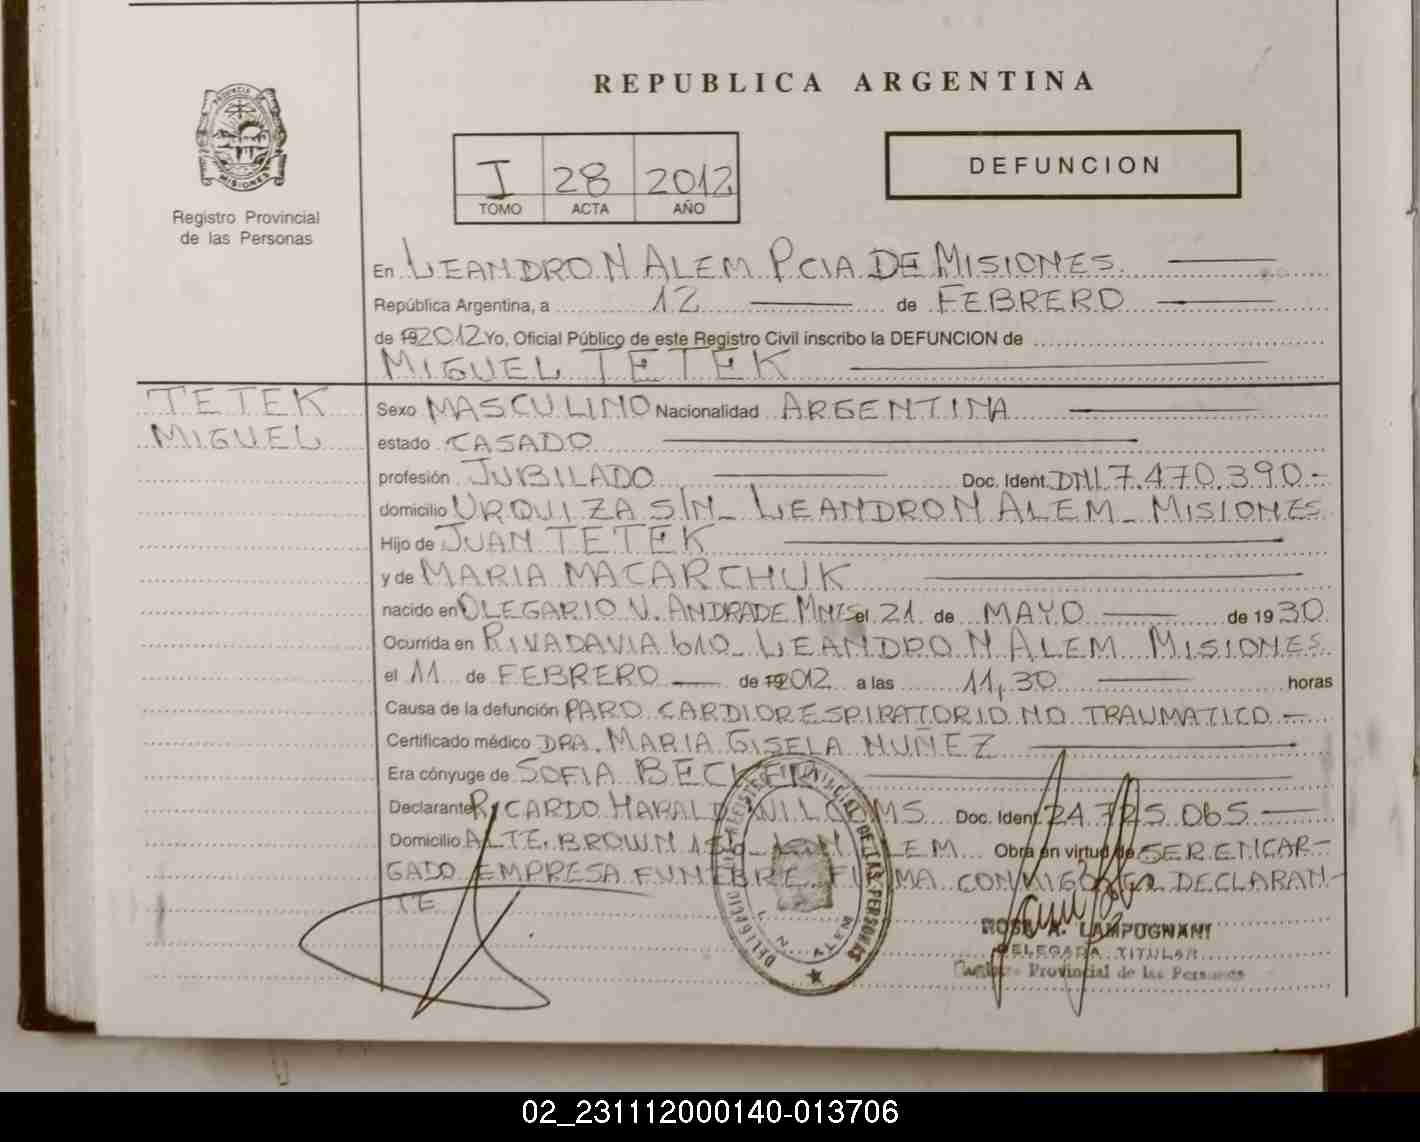 REPUBLICA ARGENTINA
PROVINCIA DE
MISIONES
Registro Provincial
de las Personas
I 28 2012
TOMO ACTA AÑO
DEFUNCION
En LEANDRO N ALEM PCIA DE MISIONES
República Argentina, a 12 de FEBRERO
de 192012 Yo, Oficial Público de este Registro Civil inscribo la DEFUNCION de
MIGUEL TETEK
TETEK
MIGUEL
Sexo MASCULINO Nacionalidad ARGENTINA
estado CASADO
profesión JUBILADO Doc. Ident. DNI 7.470.390-
domicilio URQUIZA S/N_ LEANDRO N ALEM_ MISIONES
Hijo de JUAN TETEK
y de MARIA MACARCHUK
nacido en OLEGARIO V. ANDRADE MNES el 21 de MAYO de 1930
Ocurrida en RIVADAVIA 610_ LEANDRO N ALEM MISIONES
el 11 de FEBRERO de 192012 a las 11,30 horas
Causa de la defunción PARO CARDIORESPIRATORIO NO TRAUMATICO -
Certificado médico DRA. MARIA GISELA NUÑEZ
Era cónyuge de SOFIA
Declarante RICARDO HARALD Doc. Ident. 24.725.065
Domicilio ALTE. BROWN ALEM Obra en virtud de SER ENCAR-
GADO EMPRESA FUNEBRE FIRMA CONMIGO EL DECLARAN-
TE
DELEGACION REGISTRO PROVINCIAL DE LAS PERSONAS
L. N. ALEM
ROSA A. LAMPUGNANI
DELEGADA TITULAR
Provincial de las Personas
02_231112000140-013706